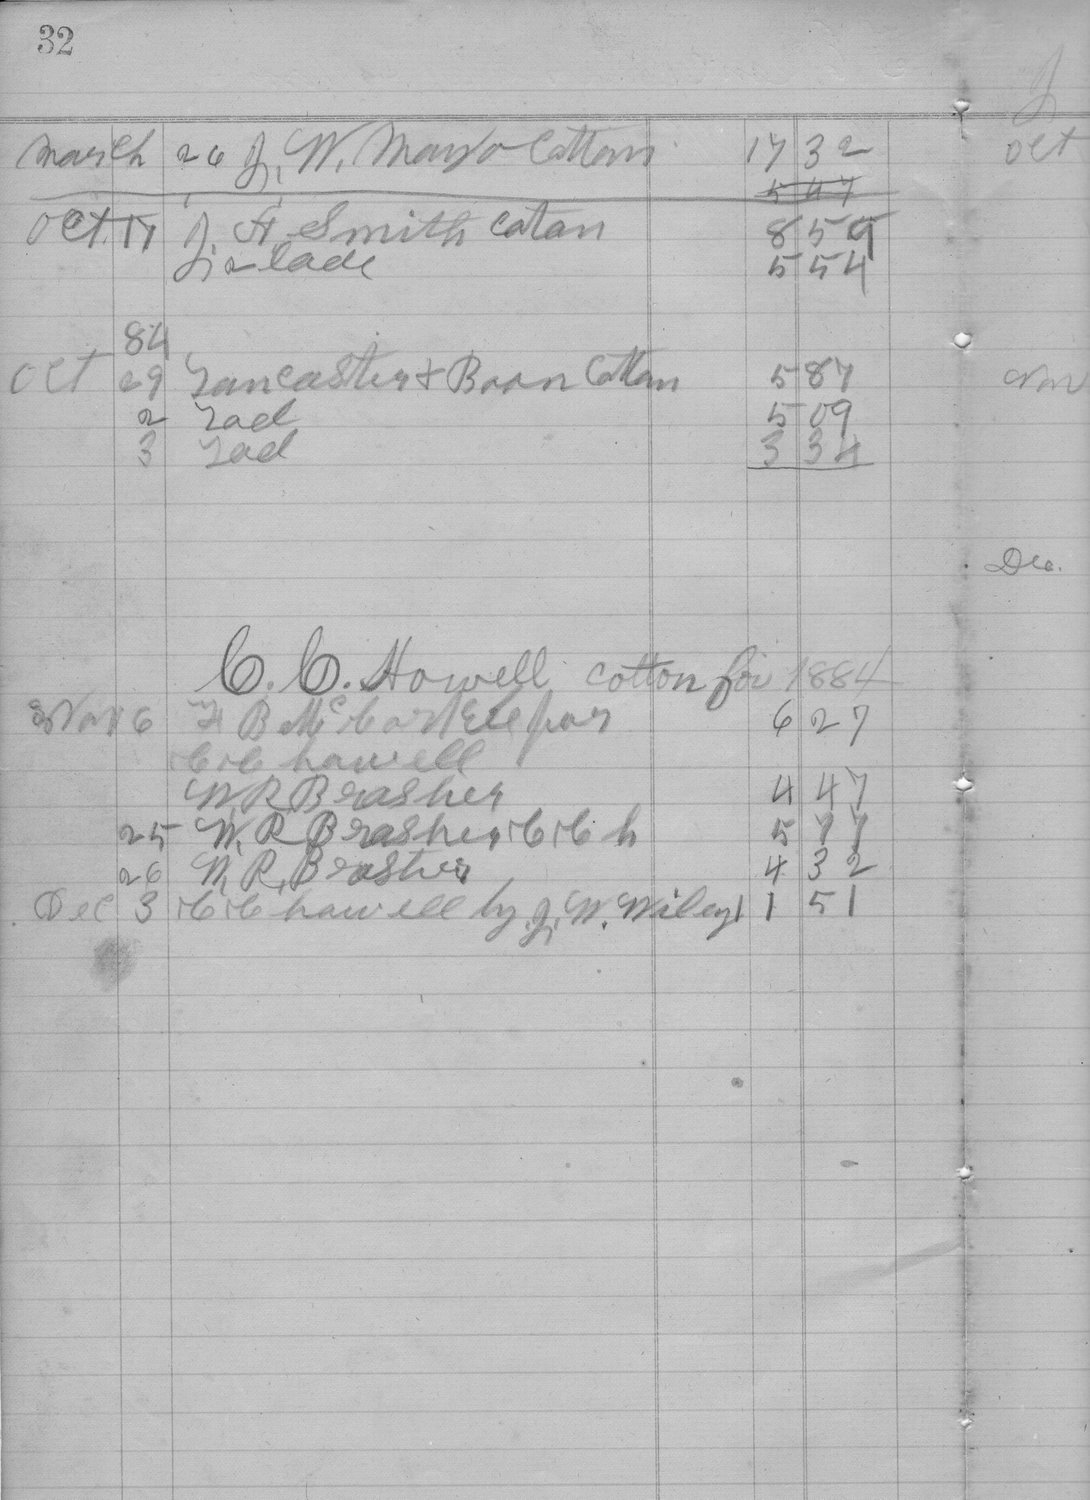 32
March 26 J. W. Mayo Cotton 17 32
5 47
Oct. 17 J. H. Smith Cotan 8 59
2 lade 5 54
84
Oct 29 Lancaster & Boon Cotton 5 87
2 Lad 5 09
3 Lad 3 34
C. C. Howell cotton for 1884
6 H B Mc 6 27
C C hawell
W R Brasher 4 47
25 W. R Brasher C C h 5 77
26 W. R. Brasher 4 32
Dec 3 C C hawell by J. W. Wiley 1 1 51
Oct
Dec.